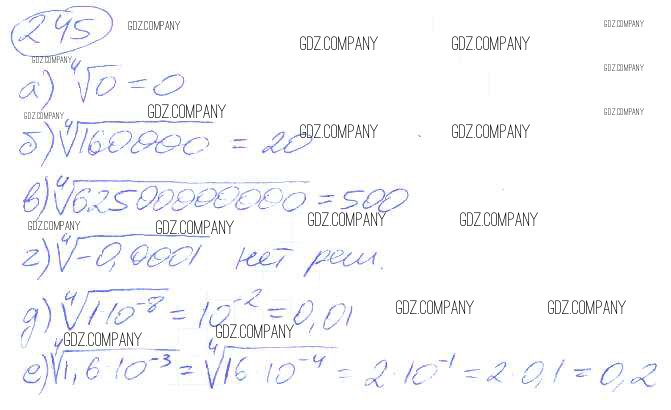 245
GDZ.COMPANY GDZ.COMPANY GDZ.COMPANY GDZ.COMPANY
GDZ.COMPANY GDZ.COMPANY
а) ⁴√0 = 0
GDZ.COMPANY GDZ.COMPANY GDZ.COMPANY
б) ⁴√160000 = 20
GDZ.COMPANY GDZ.COMPANY
в) ⁴√62500000000 = 500
GDZ.COMPANY GDZ.COMPANY GDZ.COMPANY GDZ.COMPANY
г) ⁴√-0,0001 нет реш.
д) ⁴√1·10⁻⁸ = 10⁻² = 0,01
GDZ.COMPANY GDZ.COMPANY
GDZ.COMPANY GDZ.COMPANY
е) ⁴√1,6·10⁻³ = ⁴√16·10⁻⁴ = 2·10⁻¹ = 2·0,1 = 0,2